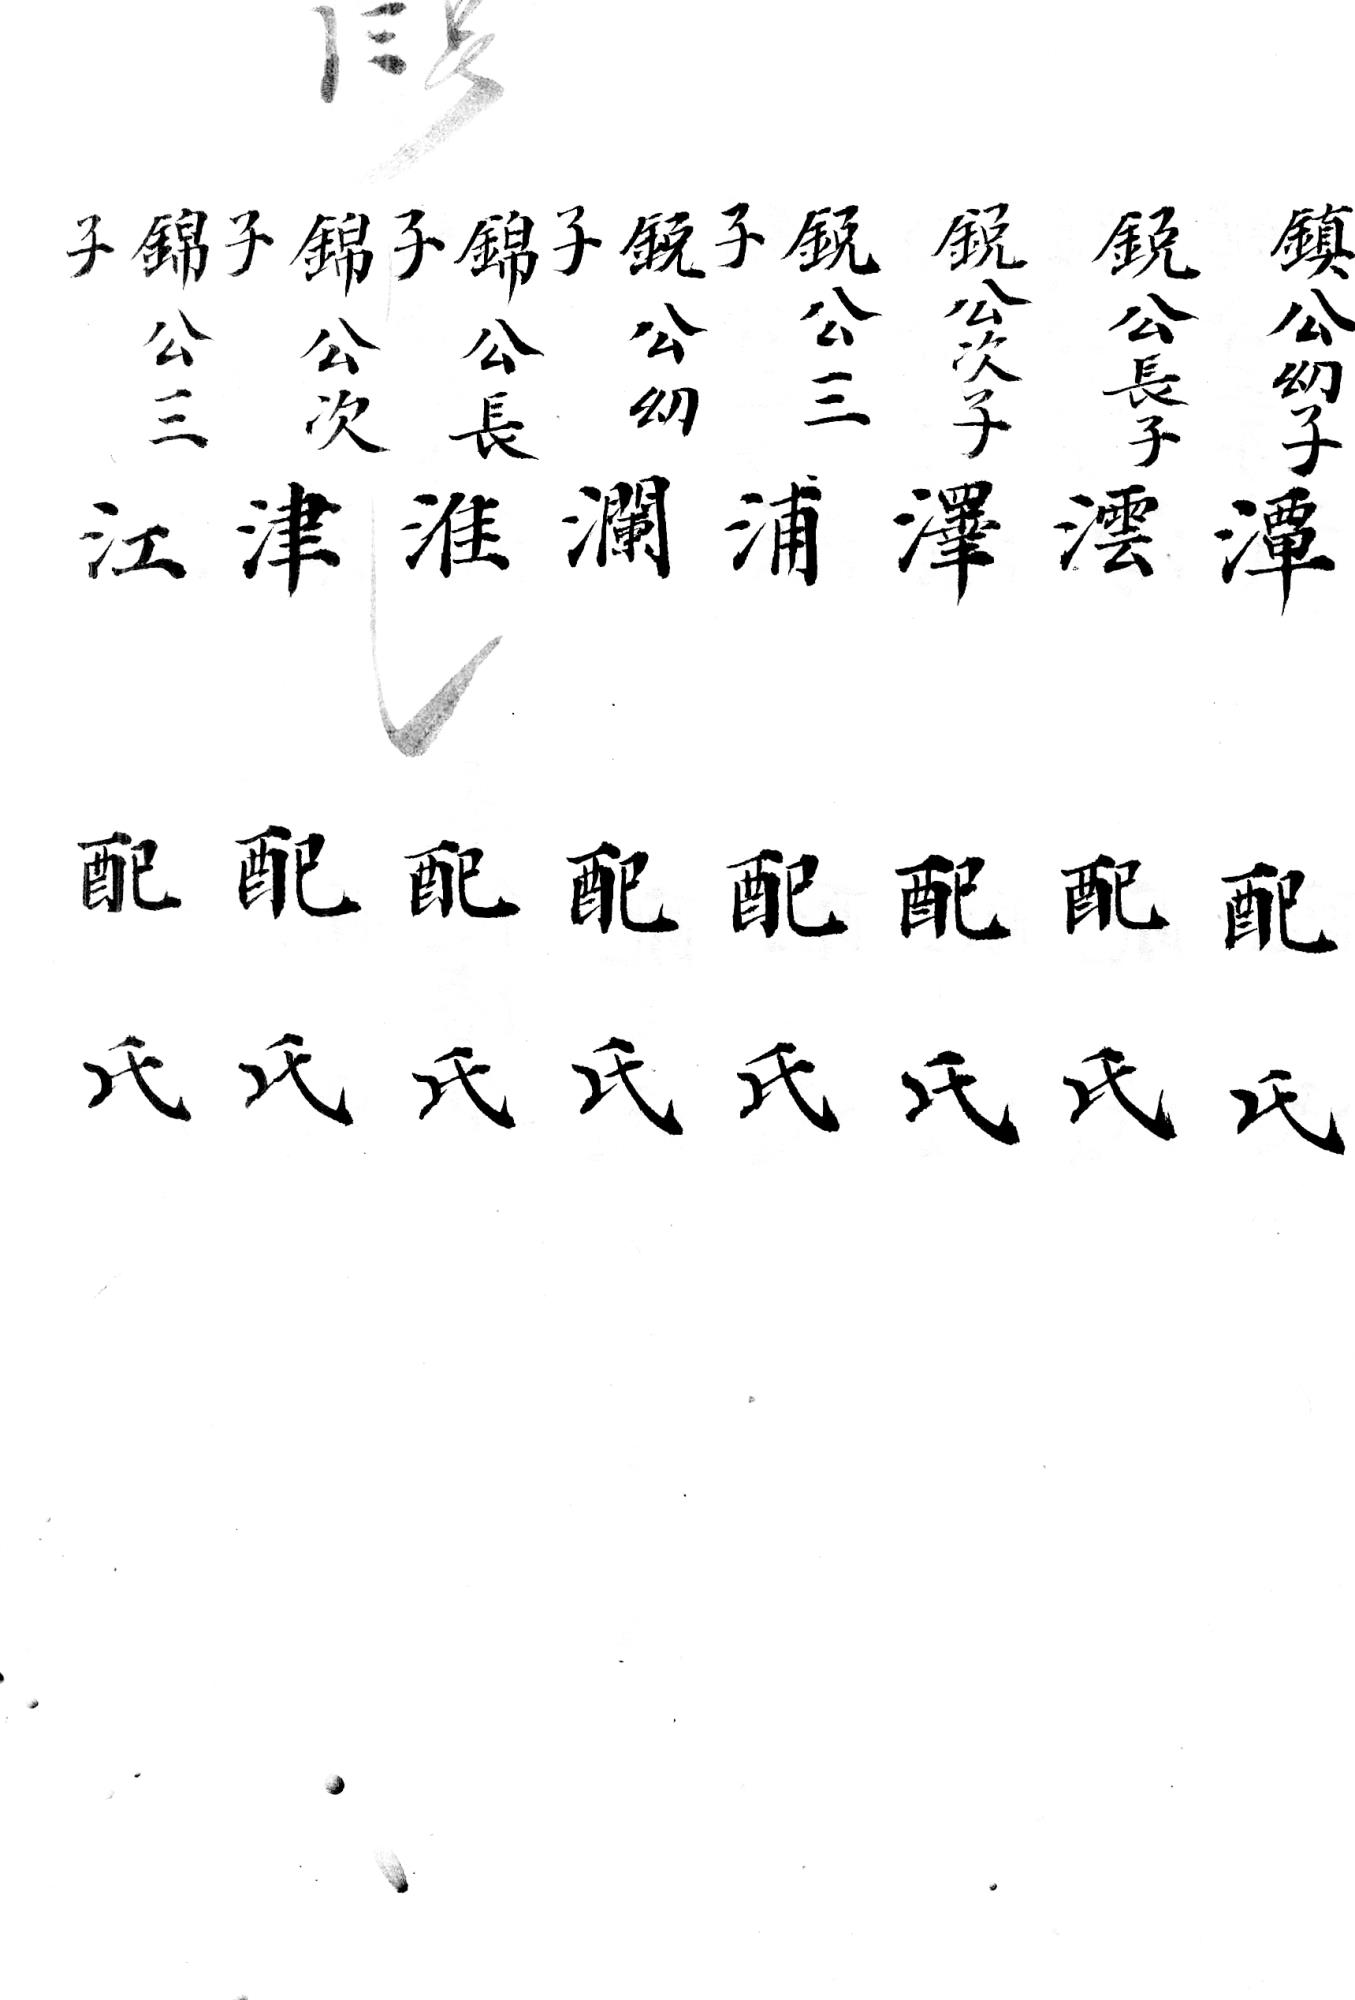 鎮公幼子潭配氏
鋭公長子澐配氏
鋭公次子澤配氏
鋭公三子浦配氏
鋭公幼子瀾配氏
錦公長子淮配氏
錦公次子津配氏
錦公三子江配氏